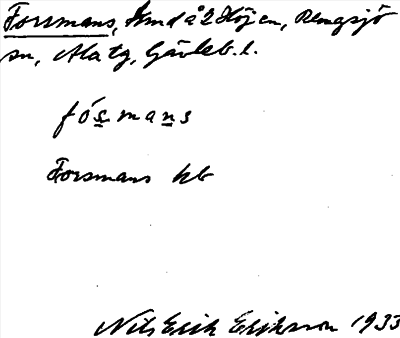 Forsmans, smd å 2 Höjen, Rengsjö
sn, Ala tg, Gävleb. l.
fo´s̲mans̲
Forsmans kb
Nils Erik Eriksson 1933